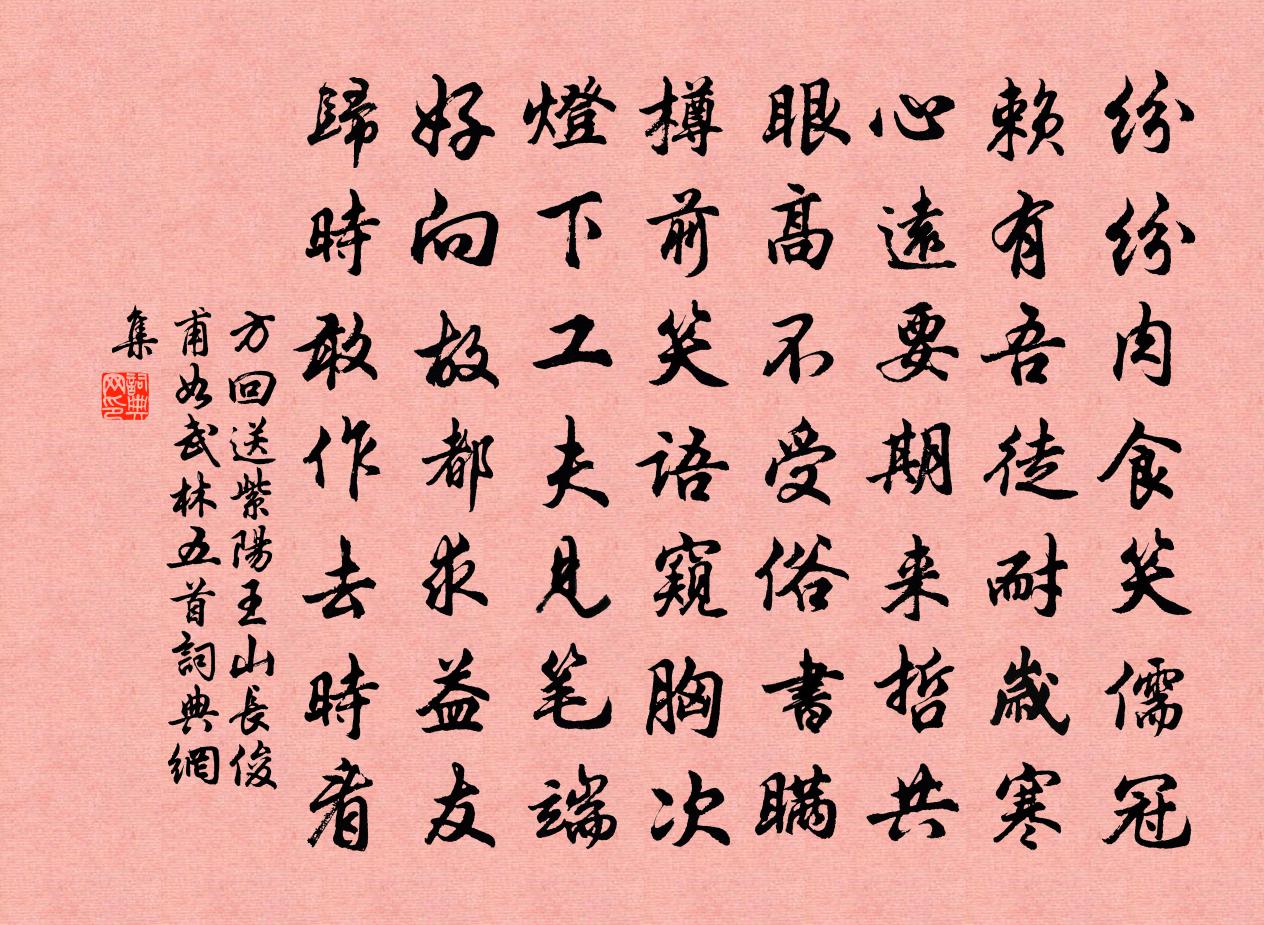 紛紛肉食笑儒冠
赖有吾徒耐歳寒
心遠要期来哲共
眼高不受俗書瞞
樽前笑語窺胸次
燈下工夫見笔端
好向故都求益友
歸時敢作去時看
方回送紫陽王山長俊
甫如武林五首詞典網
集
詞典
网印